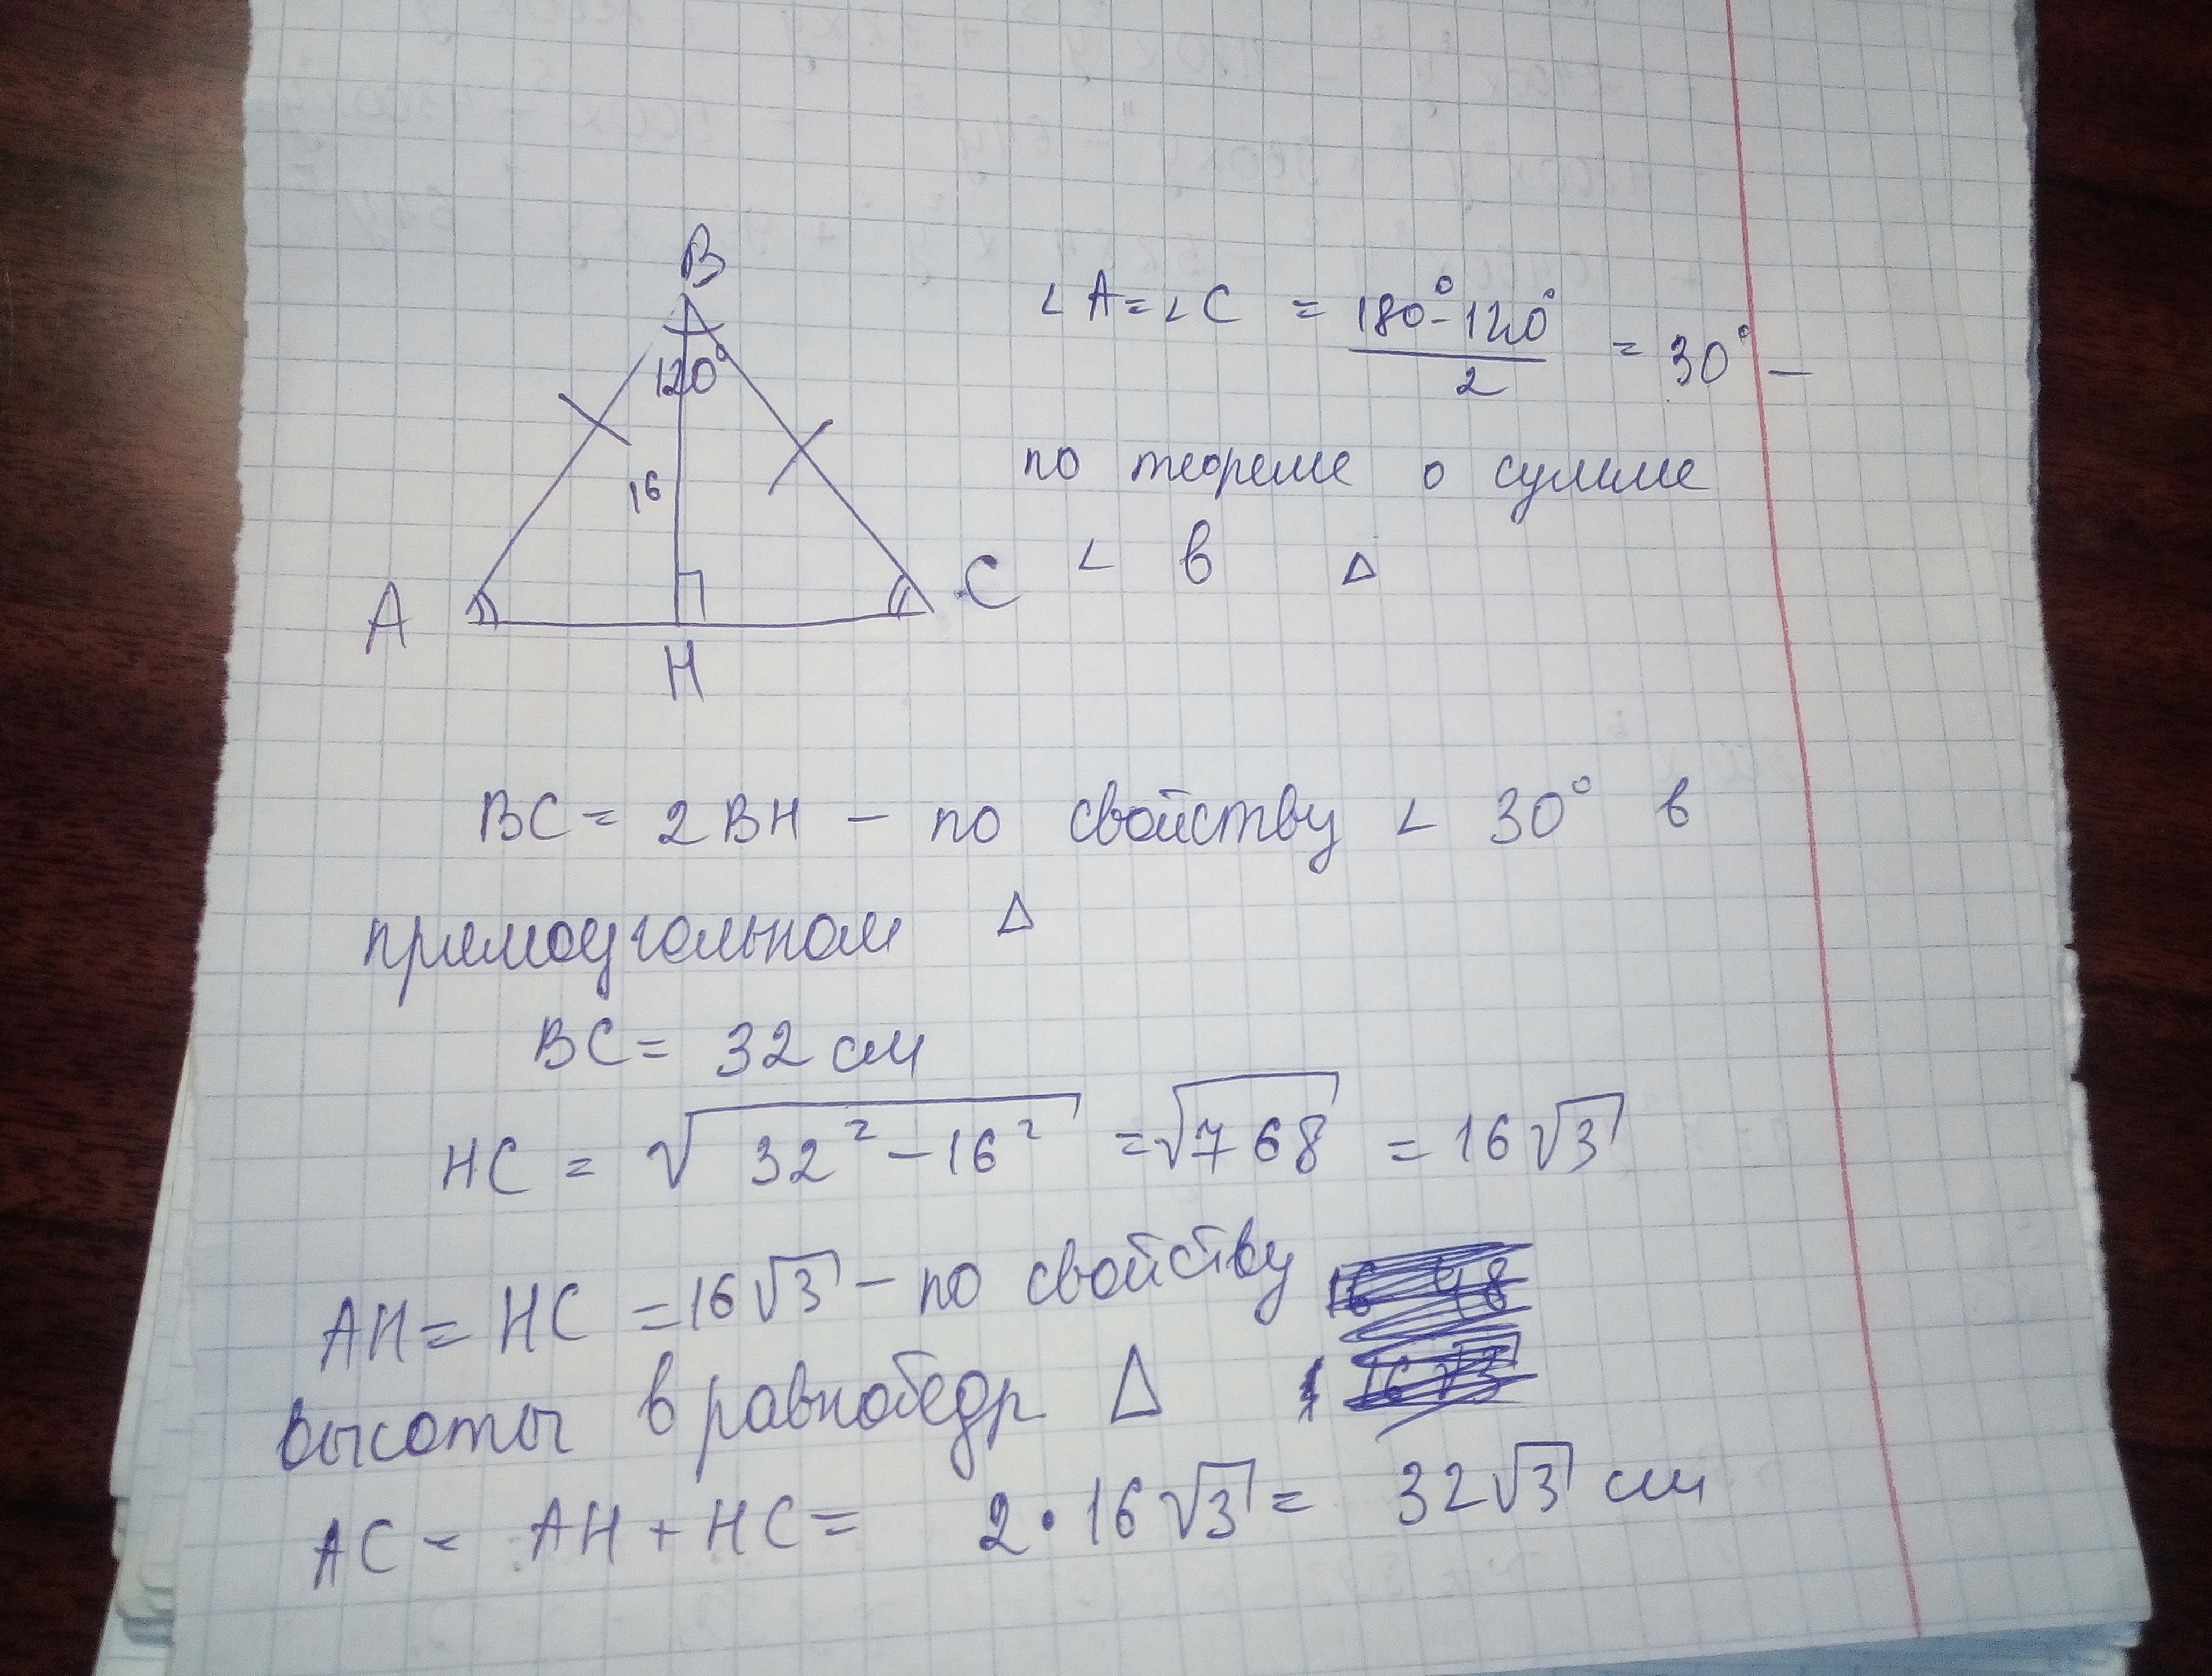 B
120°
16
A
C
H
∠A=∠C = (180°-120°)/2 = 30° –
по теореме о сумме
∠ в Δ
BC = 2BH – по свойству ∠ 30° в
прямоугольном Δ
BC = 32 см
HC = √(32² – 16²) = √768 = 16√3
AH = HC = 16√3 – по свойству
высоты в равнобедр Δ
AC = AH + HC = 2·16√3 = 32√3 см